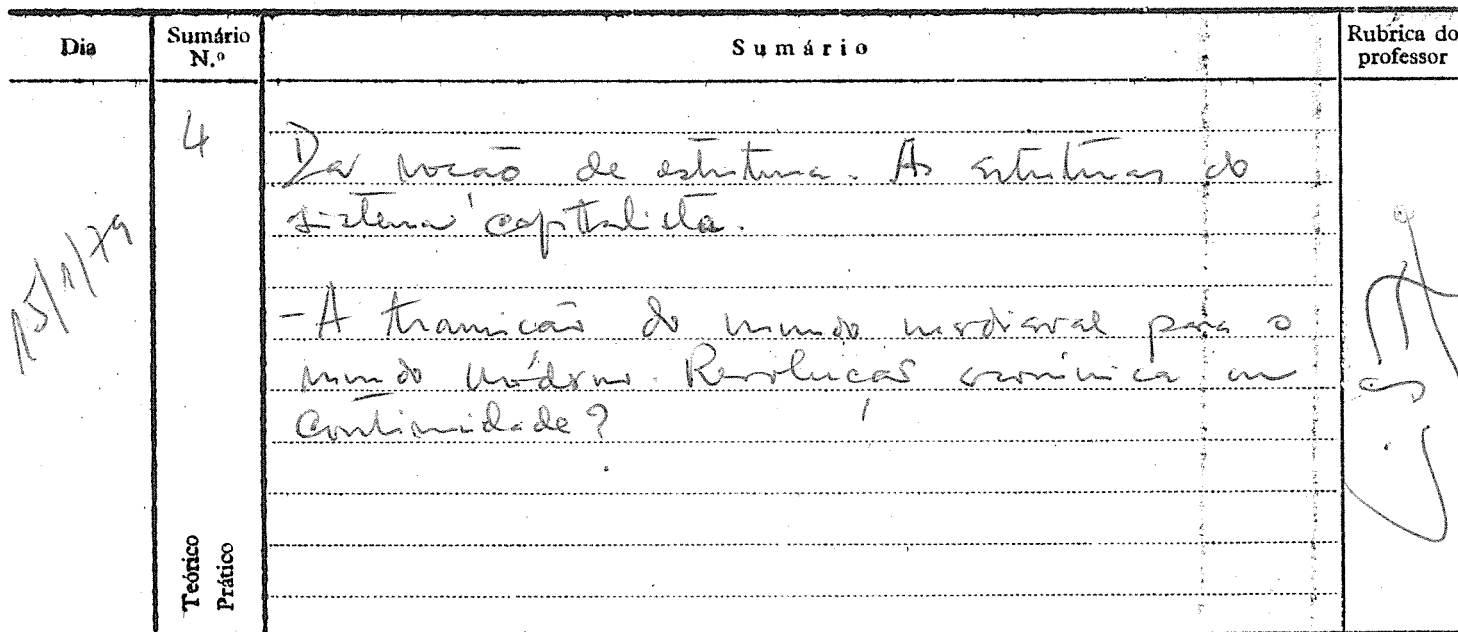 Dia
Sumário N.º
Sumário
Rubrica do professor
15/1/79
4
Da noção de estrutura. As estruturas do
sistema capitalista.
- A transição do mundo medieval para o
mundo moderno. Revolução económica ou
continuidade?
Teórico
Prático